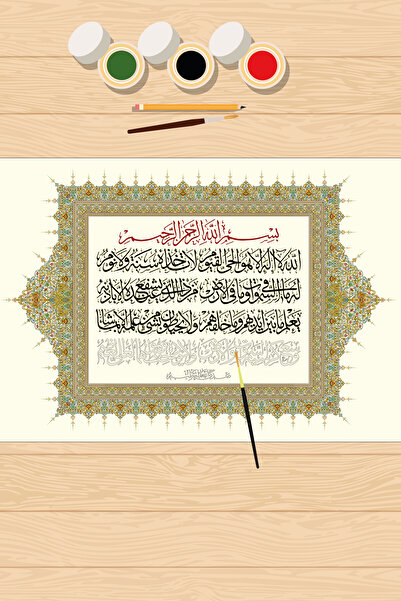 بسم الله الرحمن الرحيم
الله لا إله إلا هو الحي القيوم لا تأخذه سنة ولا نوم
له ما في السماوات وما في الأرض من ذا الذي يشفع عنده إلا بإذنه
يعلم ما بين أيديهم وما خلفهم ولا يحيطون بشيء من علمه إلا بما شاء
وسع كرسيه السماوات والأرض ولا يئوده حفظهما وهو العلي العظيم